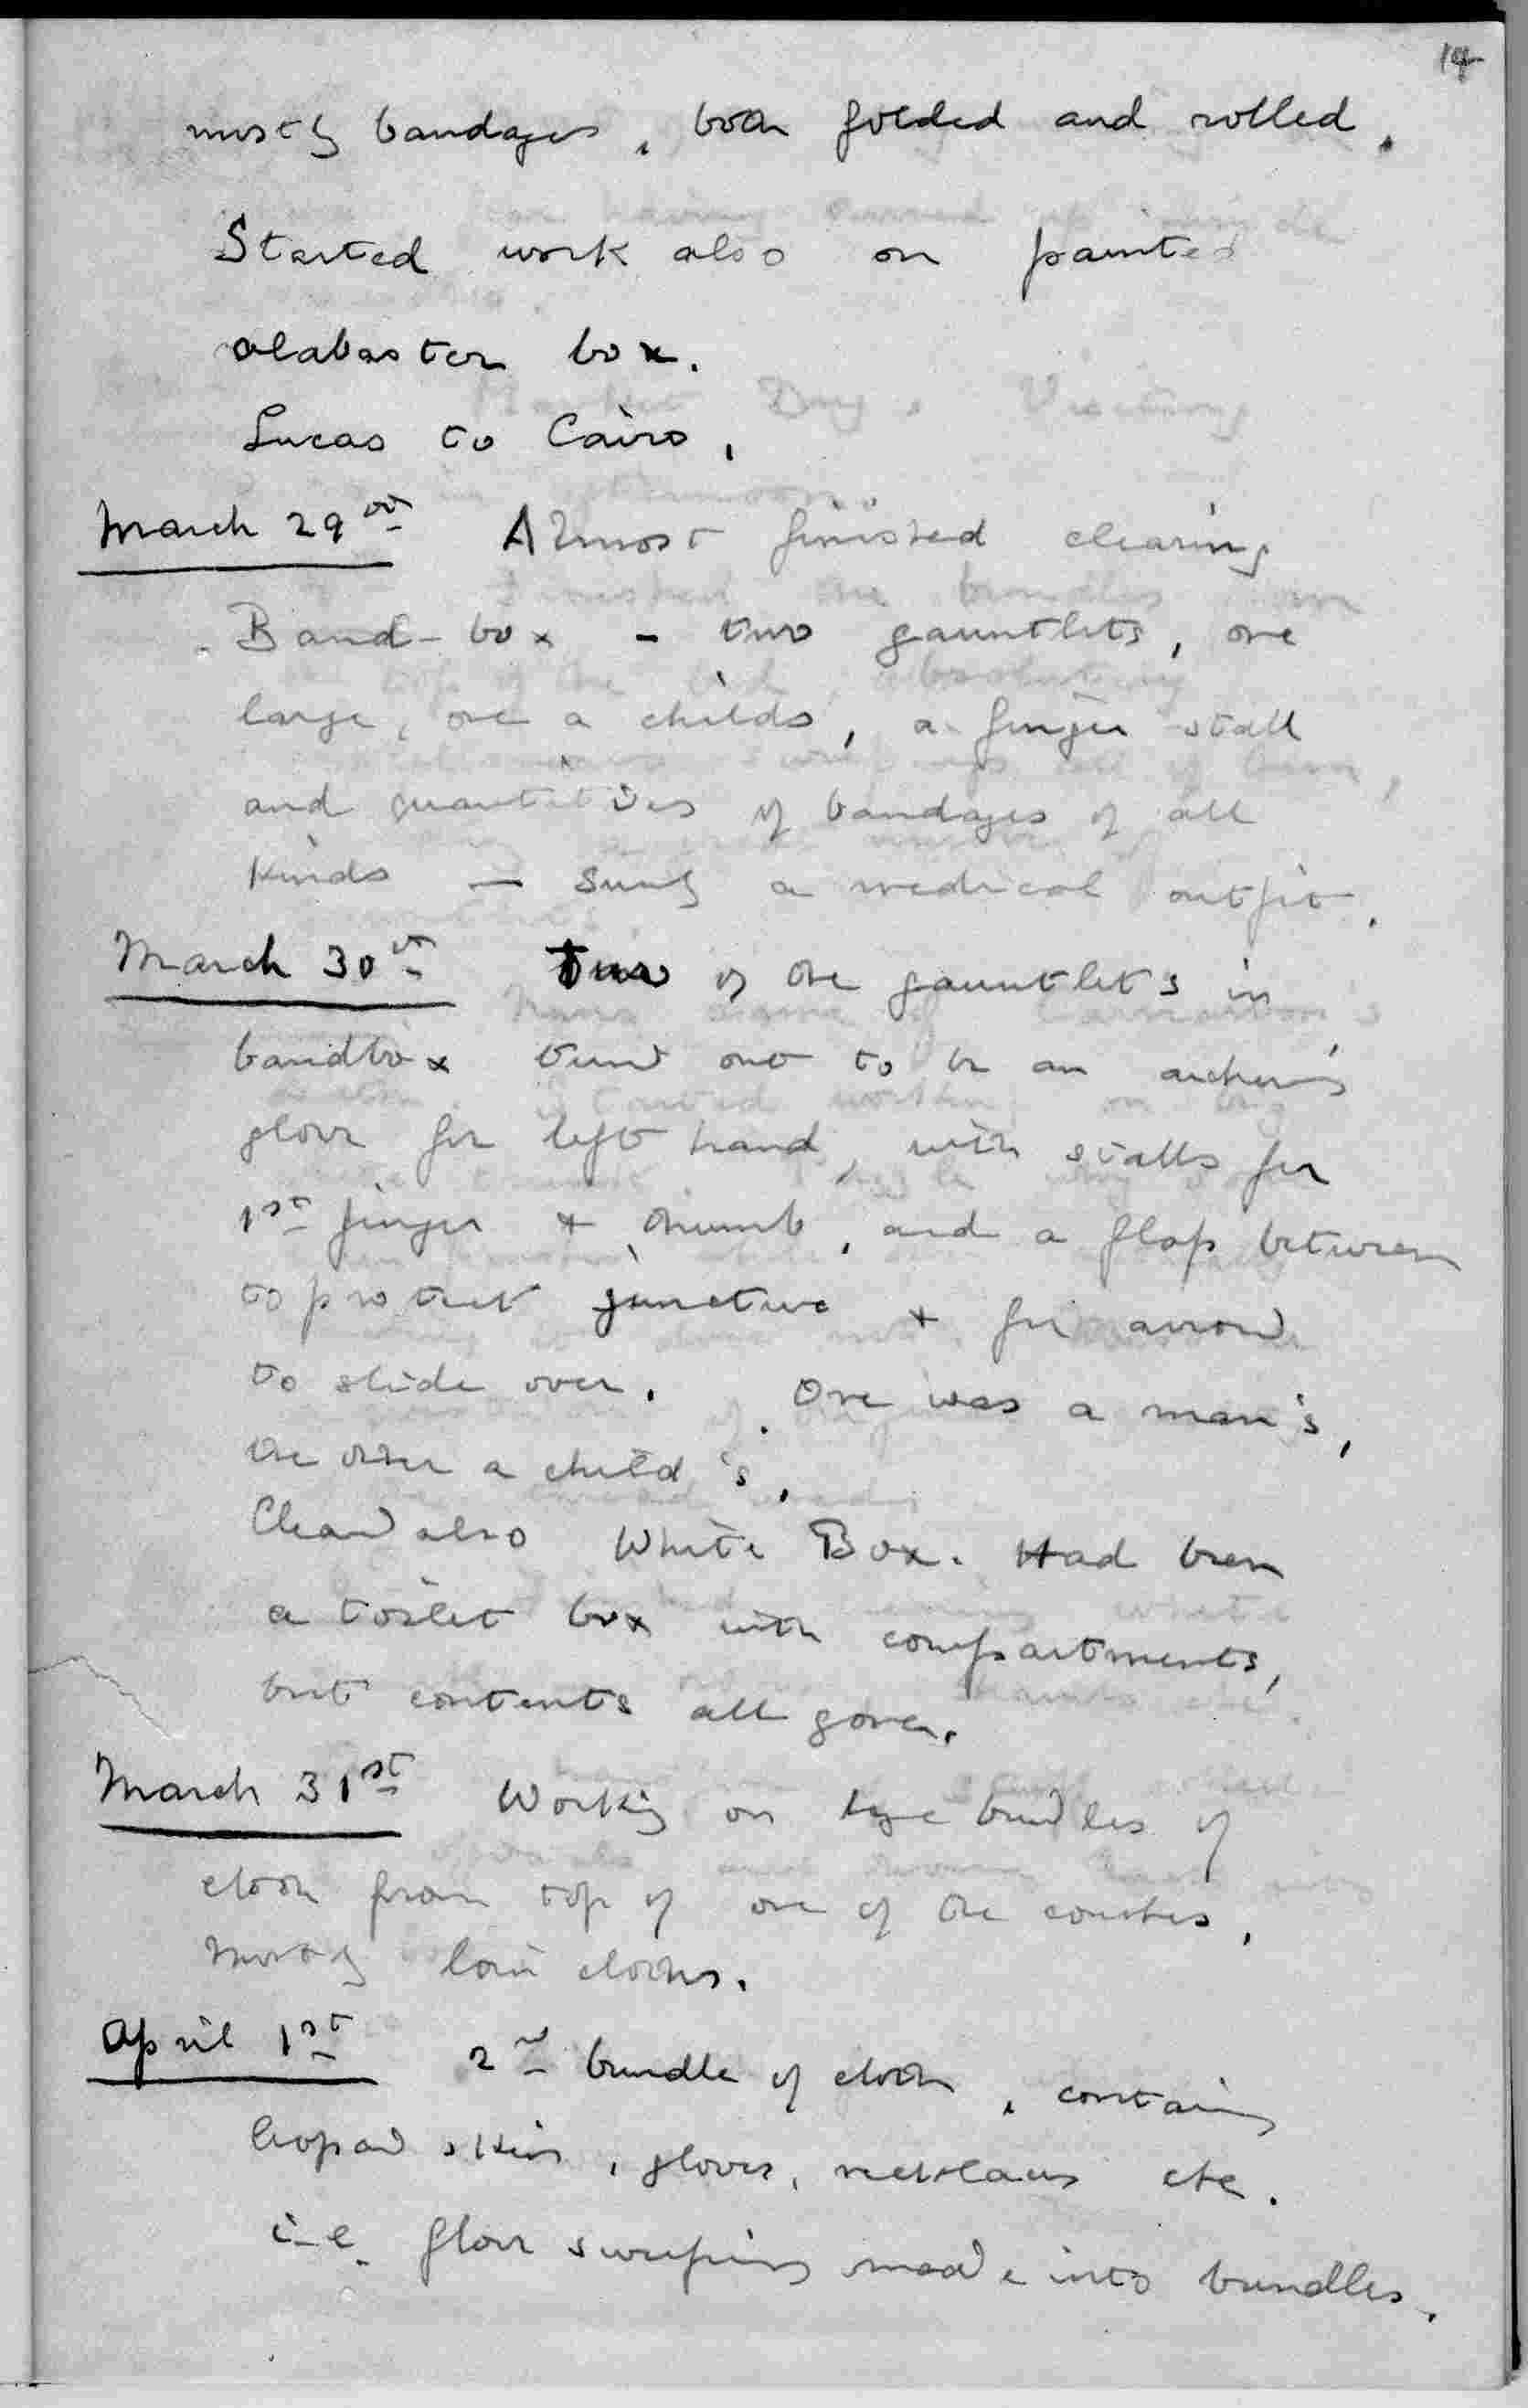 14
mostly bandages, both folded and rolled.
Started work also on painted
alabaster box.
Lucas to Cairo.
March 29th Almost finished clearing
Band-box - two gauntlets, one
large, one a childs, a finger stall
and quantities of bandages of all
kinds — surely a medical outfit.
March 30th Two of the gauntlets in
bandbox turned out to be an archer's
glove for left hand, with stalls for
1st finger & thumb, and a flap between
to protect juncture & for arrow
to slide over. One was a man's,
the other a child's.
Cleared also White Box. Had been
a toilet box with compartments,
but contents all gone.
March 31st Working on large bundles of
cloth from top of one of the couches,
Mostly loin cloths.
April 1st 2nd bundle of cloth, containing
leopard skin, gloves, necklaces etc.
i-e. floor sweepings made into bundles.